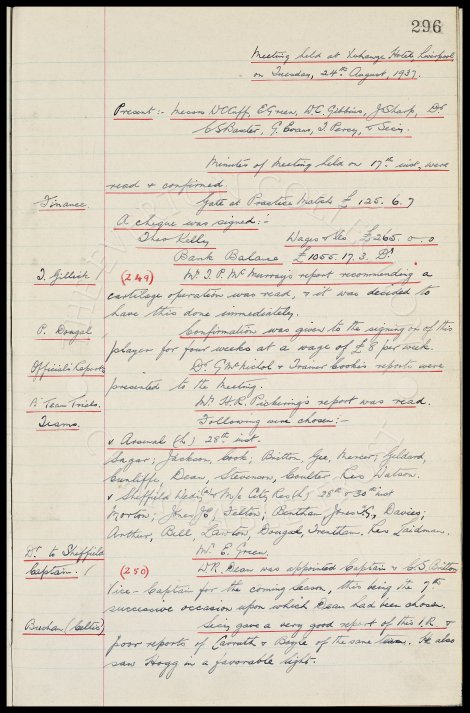 296
Meeting held at Exchange Hotel, Liverpool,
on Tuesday, 24th August, 1937.
Present:- Messrs W.C. Cuff, E. Green, W.C. Gibbins, J. Sharp, Drs
C.S. Baxter, G. Evans, T. Percy, & Secy.
Minutes of Meeting held on 17th inst. were
read & confirmed.
Finance.
Gate at Practice Match £ 125. 6. 7
A cheque was signed:-
Theo Kelly Wages &c £265. 0. 0
Bank Balance £1055. 17. 3. Dr.
T. Gillick (249) Mr. T.P. McMurray's report recommending a
cartilage operation was read, & it was decided to
have this done immediately.
P. Dougal Confirmation was given to the signing on of this
player for four weeks at a wage of £8 per week.
Officials Reports Drs. G McNichol & Trainer Cooke's reports were
presented to the Meeting.
'A' Team Trials. Mr. H.R. Pickering's report was read.
Teams. Following were chosen:-
v Arsenal (h) 28th inst.
Sagar; Jackson, Cook; Britton, Gee, Mercer; Geldard,
Cunliffe, Dean, Stevenson, Coulter. Res Watson.
v Sheffield Wed Res (a) & M/c City Res (h) 28th & 30th inst
Morton; Jones JE, Felton; Bentham Jones TG, Davies;
Arthur, Bell, Lawton, Dougal, Trentham. Res Laidman.
Dr. to Sheffield Mr. E. Green.
Captain. (250) W.R. Dean was appointed Captain & C.S. Britton
Vice-Captain for the coming season, this being the 7th
successive occasion upon which Dean had been chosen.
Buchan (Celtic) Secy gave a very good report of this I.R. &
poor reports of Carruth & Boyle of the same team. He also
saw Hogg in a favorable light.